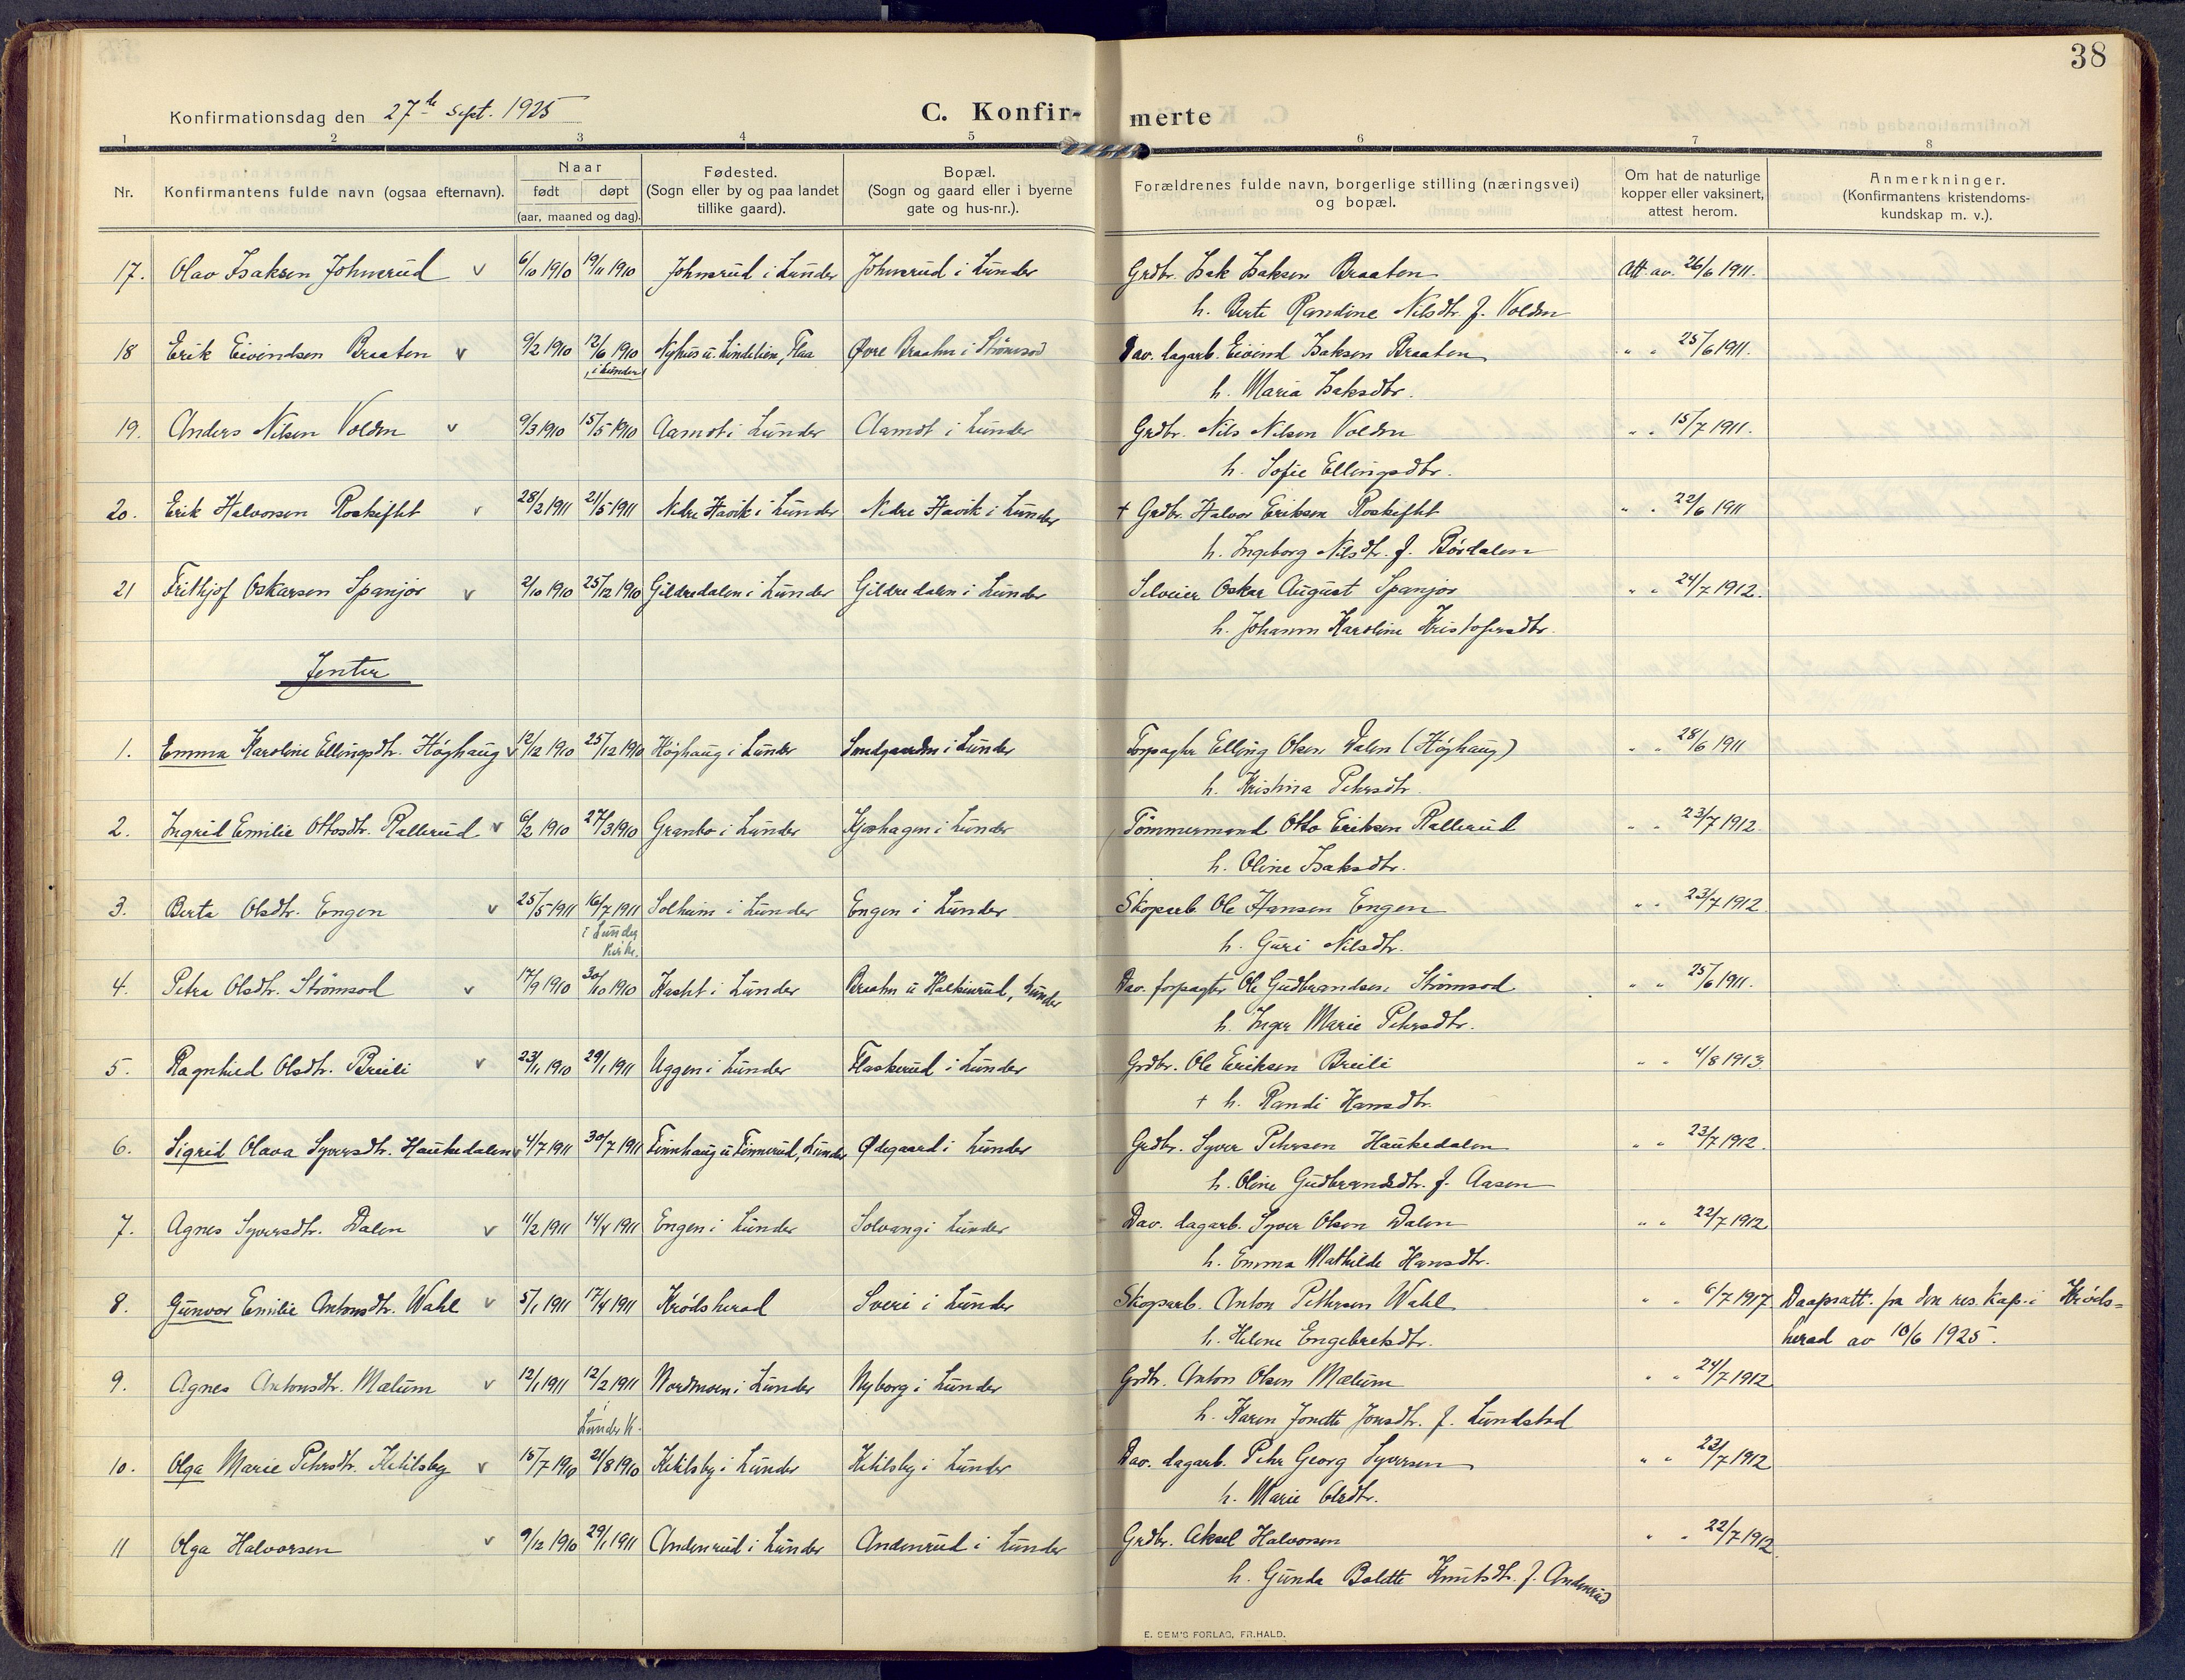 38
Konfirmationsdag den 27de Sept. 1925
C. Konfir- merte
1 2 3 4 5 6 7 8
Nr. Konfirmantens fulde navn (ogsaa efternavn). Naar født døpt (aar, maaned og dag). Fødested. (Sogn eller by og paa landet tillike gaard). Bopæl. (Sogn og gaard eller i byerne gate og hus-nr.). Forældrenes fulde navn, borgerlige stilling (næringsvei) og bopæl. Om hat de naturlige kopper eller vaksinert, attest herom. Anmerkninger. (Konfirmantens kristendoms- kundskap m. v.).
17. Olav Isaksen Johnsrud v 6/10 1910 19/11 1910 Johnsrud i Lunder Johnsrud i Lunder Grdbr. Isak Isaksen Braaten Att. av. 26/6 1911.
h. Berte Randine Nilsdtr. f. Volden
18 Erik Eivindsen Braaten v 9/2 1910 12/6 1910 Nyhus u. Lindelien, Flaa Øvre Braaten i Strømsod Dav. dagarb. Eivind Isaksen Braaten " " 25/6 1911.
i Lunder
h. Maria Isaksdtr.
19. Anders Nilsen Volden v 9/3 1910 15/5 1910 Aamot i Lunder Aamot i Lunder Grdbr. Nils Nilsen Volden " " 15/7 1911.
h. Sofie Ellingsdtr.
20. Erik Halvorsen Roskiftet v 28/2 1911 21/5 1911 Nedre Havik i Lunder Nedre Havik i Lunder + Grdbr. Halvor Eriksen Roskiftet " " 22/6 1911
h. Ingeborg Nilsdtr. f. Bördalen
21 Frithjof Oskarsen Spanjor v 2/10 1910 25/12 1910 Gildredalen i Lunder Gildredalen i Lunder Selveier Oskar August Spanjor " " 24/7 1912.
h. Johanne Karoline Kristofersdtr.
Jenter
1. Emma Karoline Ellingsdtr. Höghaug v 12/12 1910 25/12 1910 Höghaug i Lunder Sandgaarden i Lunder Forpagter Elling Olsen Dalen (Höghaug) " " 28/6 1911
h. Kristina Petersdtr.
2. Ingrid Emilie Ottosdtr. Rallerud v 6/2 1910 27/3 1910 Granbo i Lunder Kjoshagen i Lunder Tömmermand Otto Eriksen Rallerud " " 23/7 1912
h. Oline Isaksdtr.
3. Berta Olsdtr. Engen v 25/5 1911 16/7 1911 Solheim i Lunder Engen i Lunder Skogarb. Ole Hansen Engen " " 23/7 1912
i Lunder
Kirke.
h. Guri Nilsdtr.
4. Petra Olsdtr. Strømsod v 17/9 1910 30/10 1910 Kastet i Lunder Braaten u Halkinrud, Lunder Dav. forpagter Ole Gudbrandsen Strømsod " " 25/6 1911.
h. Inger Marie Petersdtr.
5. Ragnhild Olsdtr. Breili v 23/11 1910 29/1 1911 Uggen i Lunder Flaskerud i Lunder Grdbr. Ole Eriksen Breili " " 4/8 1913.
+ h. Randi Hansdtr.
6. Sigrid Olava Syversdtr. Haukedalen v 4/7 1911 30/7 1911 Finnhaug u Finnerud, Lunder Ødegaard i Lunder Grdbr. Syver Petersen Haukedalen " " 23/7 1912.
h. Oline Gudbrandsdtr. f. Aasen
7. Agnes Syversdtr. Dalen v 11/2 1911 14/4 1911 Engen i Lunder Solvang i Lunder Dav. dagarb. Syver Olsen Dalen " " 22/7 1912
h. Emma Mathilde Hansdtr.
8. Gunvor Emilie Antonsdtr. Wahl v 5/1 1911 17/4 1911 Krødsherad Sveri i Lunder Skogarb. Anton Pettersen Wahl " " 6/7 1917 Daapsatt. fra den res. kap. i Krøds=
h. Helene Engebretsdtr. herad av 10/6 1925.
9. Agnes Antonsdtr. Mælum v 12/1 1911 12/2 1911 Nordmoen i Lunder Nyborg i Lunder Grdbr. Anton Olsen Mælum " " 24/7 1912
i
Lunder K.
h. Karen Jonette Jonsdtr. f. Lundstad
10. Olga Marie Petersdtr. Ketilsby v 15/7 1910 21/8 1910 Ketilsby i Lunder Ketilsby i Lunder Dav. dagarb. Peter Georg Syversen " " 23/7 1912
h. Marie Olsdtr.
11 Olga Halvorsen v 9/12 1910 29/1 1911 Andenrud i Lunder Andenrud i Lunder Grdbr. Aksel Halvorsen " " 22/7 1912
h. Gunda Bolette Knutsdtr. f. Andenrud
E. SEM'S FORLAG, FR.HALD.